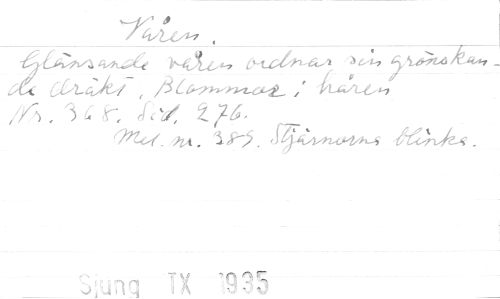 Våren.
Glänsande våren ordnar sin grönskan-
de dräkt, Blommor i håren
Nr. 368. Sid. 276.
Mel. nr. 389. Stjärnorna blinka.
Sjung TX 1935